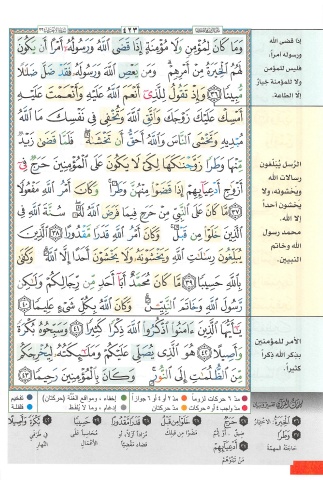 ٤٢٣
وَمَا كَانَ لِمُؤْمِنٍ وَلَا مُؤْمِنَةٍ إِذَا قَضَى اللَّهُ وَرَسُولُهُ أَمْرًا أَن يَكُونَ
لَهُمُ الْخِيَرَةُ مِنْ أَمْرِهِمْ وَمَن يَعْصِ اللَّهَ وَرَسُولَهُ فَقَدْ ضَلَّ ضَلَالًا
مُّبِينًا ٣٦ وَإِذْ تَقُولُ لِلَّذِي أَنْعَمَ اللَّهُ عَلَيْهِ وَأَنْعَمْتَ عَلَيْهِ
أَمْسِكْ عَلَيْكَ زَوْجَكَ وَاتَّقِ اللَّهَ وَتُخْفِي فِي نَفْسِكَ مَا اللَّهُ
مُبْدِيهِ وَتَخْشَى النَّاسَ وَاللَّهُ أَحَقُّ أَن تَخْشَاهُ فَلَمَّا قَضَىٰ زَيْدٌ
مِّنْهَا وَطَرًا زَوَّجْنَاكَهَا لِكَيْ لَا يَكُونَ عَلَى الْمُؤْمِنِينَ حَرَجٌ فِي
أَزْوَاجِ أَدْعِيَائِهِمْ إِذَا قَضَوْا مِنْهُنَّ وَطَرًا وَكَانَ أَمْرُ اللَّهِ مَفْعُولًا
٣٧ مَّا كَانَ عَلَى النَّبِيِّ مِنْ حَرَجٍ فِيمَا فَرَضَ اللَّهُ لَهُ سُنَّةَ اللَّهِ فِي
الَّذِينَ خَلَوْا مِن قَبْلُ وَكَانَ أَمْرُ اللَّهِ قَدَرًا مَّقْدُورًا ٣٨ الَّذِينَ
يُبَلِّغُونَ رِسَالَاتِ اللَّهِ وَيَخْشَوْنَهُ وَلَا يَخْشَوْنَ أَحَدًا إِلَّا اللَّهَ وَكَفَىٰ
بِاللَّهِ حَسِيبًا ٣٩ مَّا كَانَ مُحَمَّدٌ أَبَا أَحَدٍ مِّن رِّجَالِكُمْ وَلَٰكِن
رَّسُولَ اللَّهِ وَخَاتَمَ النَّبِيِّينَ وَكَانَ اللَّهُ بِكُلِّ شَيْءٍ عَلِيمًا ٤٠
يَا أَيُّهَا الَّذِينَ آمَنُوا اذْكُرُوا اللَّهَ ذِكْرًا كَثِيرًا ٤١ وَسَبِّحُوهُ بُكْرَةً
وَأَصِيلًا ٤٢ هُوَ الَّذِي يُصَلِّي عَلَيْكُمْ وَمَلَائِكَتُهُ لِيُخْرِجَكُم
مِّنَ الظُّلُمَاتِ إِلَى النُّورِ وَكَانَ بِالْمُؤْمِنِينَ رَحِيمًا ٤٣
إذا قضى الله
ورسوله أمراً،
فليس للمؤمن
ولا للمؤمنة خيارٌ
إلّا الطاعة.
الرّسل يُبَلّغون
رسالات الله
ويخشونه، ولا
يخشون أحداً
إلا الله.
محمد رسول
الله وخاتم
النبيين.
الأمر للمؤمنين
بذكر الله ذكراً
كثيراً.
مدّ ٦ حركات لزوماً مدّ ٢ أو ٤ أو ٦ جوازاً إخفاء، ومواقع الغُنّة (حركتان) تفخيم
مدّ واجب ٤ أو ٥ حركات مدّ حركتان إدغام، وما لا يُلفظ قلقلة